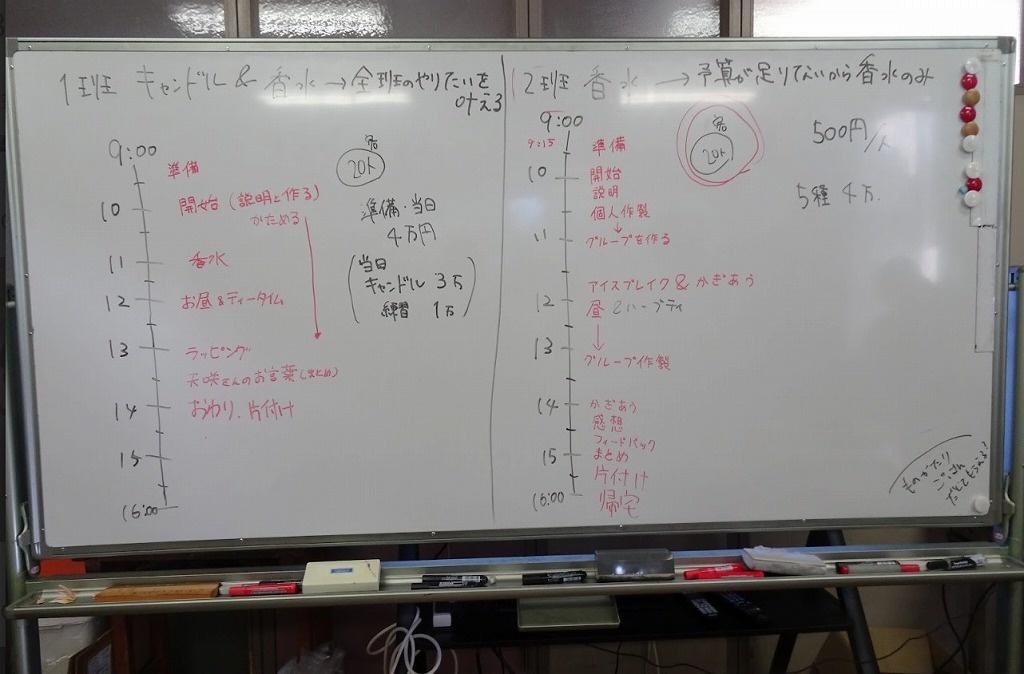 1班 キャンドル & 香水 → 全班のやりたいを
叶える
9:00
準備
10
開始 (説明と作る)
かためる
11
香水
12
お昼&ティータイム
13
ラッピング
天咲さんのお言葉(まとめ)
14
おわり、片付け
15
16:00
名
20人
準備・当日
4万円
(当日
キャンドル 3万
練習 1万)
2班 香水 → 予算が足りてないから香水のみ
9:00
9:15
準備
10
開始
説明
個人作製
↓
11
グループを作る
アイスブレイク & かぎあう
12
昼 とハーブティ
↓
13
グループ作製
14
かぎあう
感想
フィードバック
15
まとめ
片付け
16:00
帰宅
名
20人
500円/人
5種 4万.